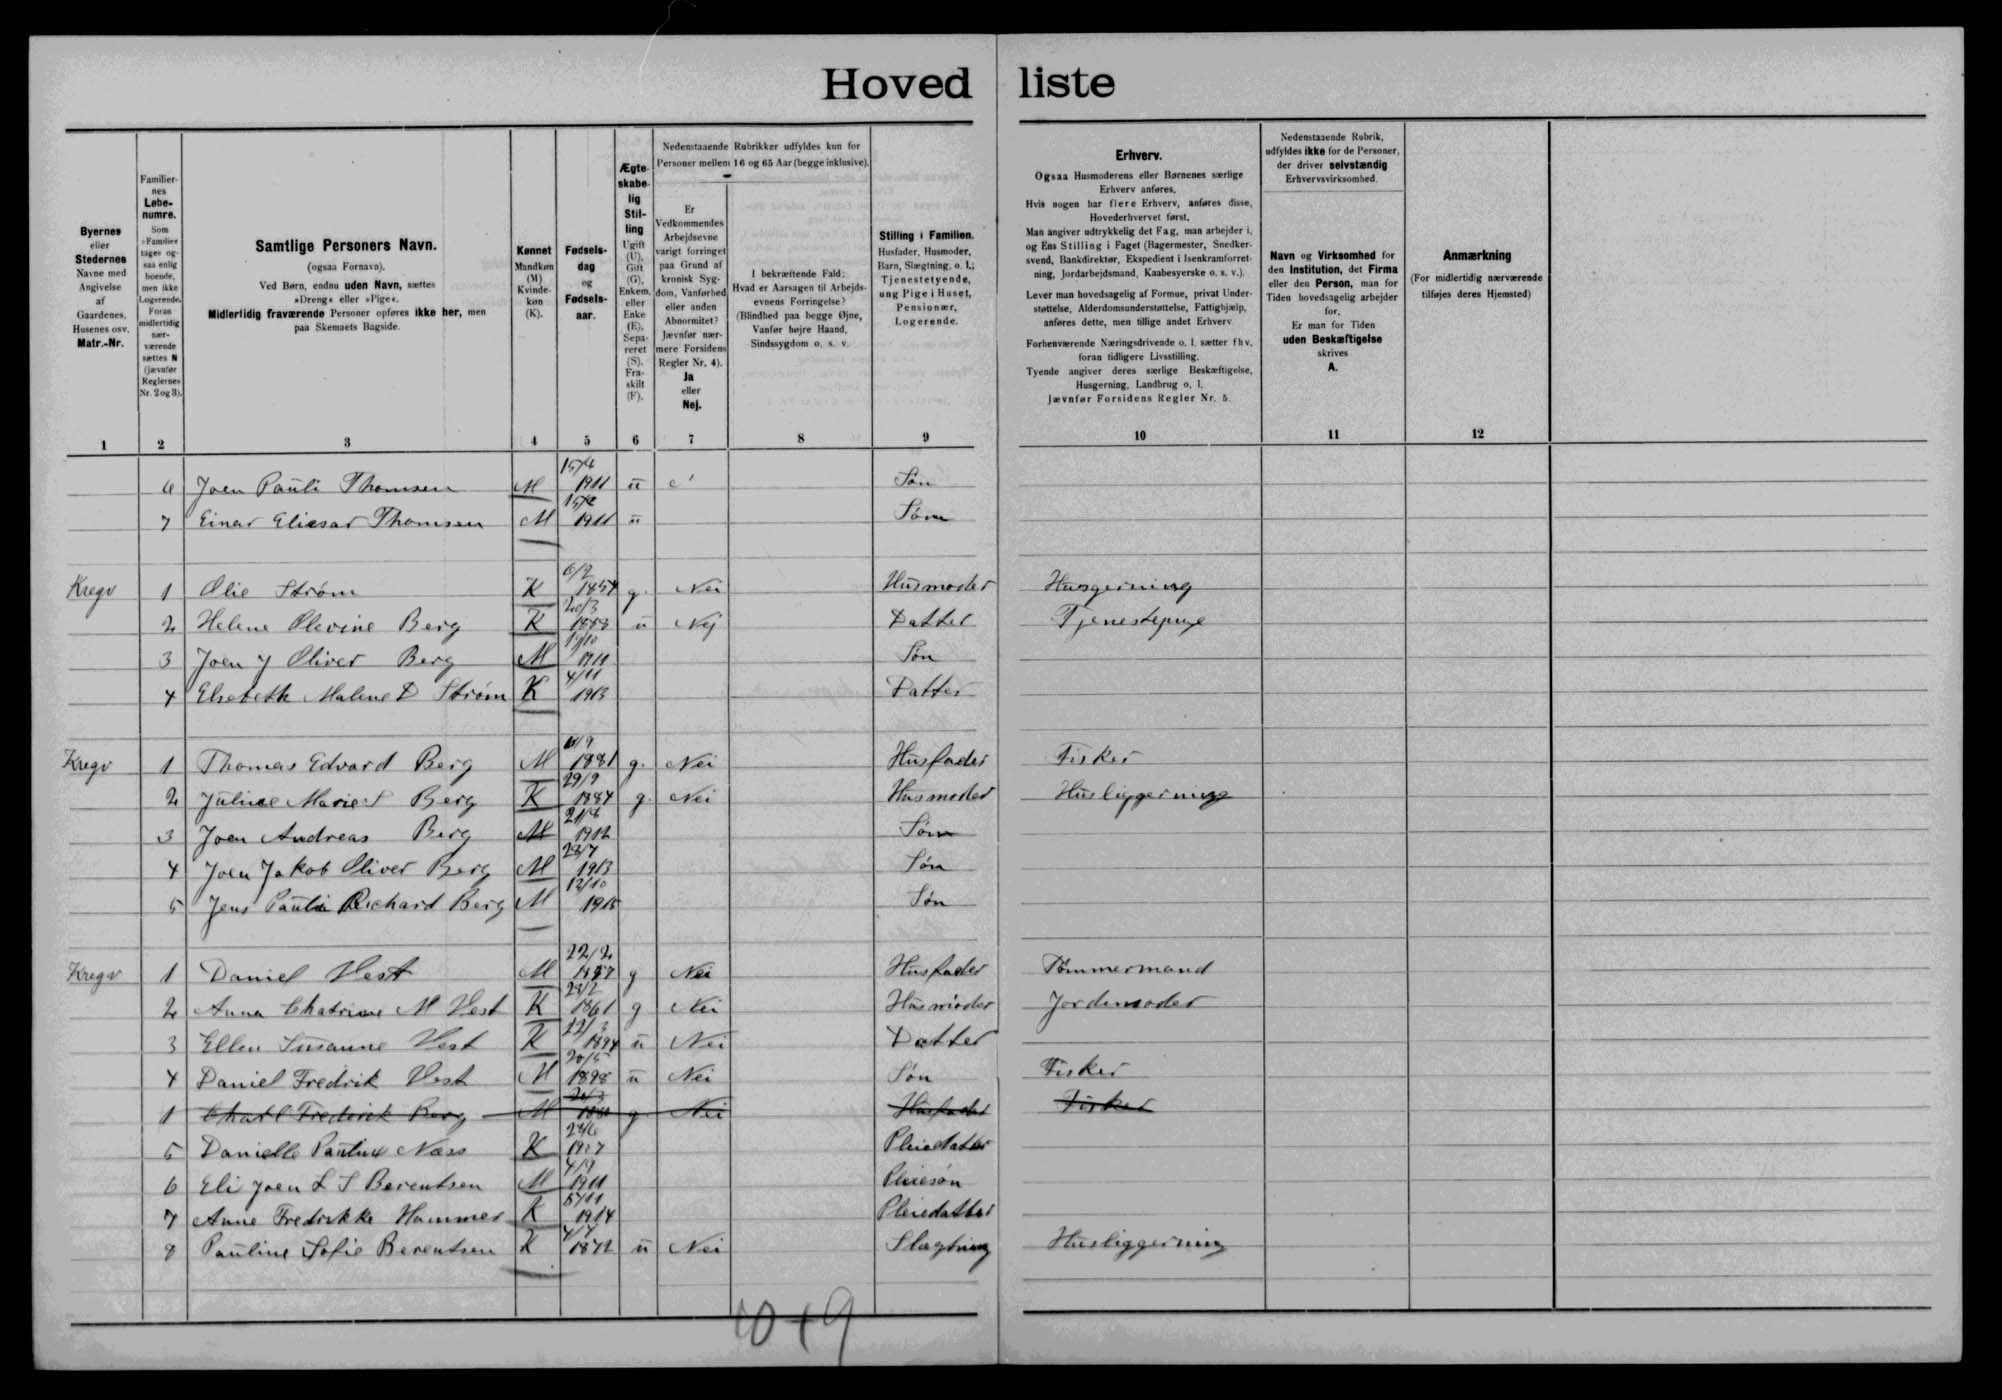 Hoved liste
Byernes
eller
Stedernes
Navne med
Angivelse
af
Gaardenes,
Husenes osv.
Matr.-Nr.
Familier-
nes
Løbe-
numre.
Som
»Familie«
tages og-
saa enlig
boende,
men ikke
Logerende.
Foran
midlertidig
nær-
værende
sættes N
(jævnfør
Reglernes
Nr. 2 og 3).
Samtlige Personers Navn.
(ogsaa Fornavn).
Ved Børn, endnu uden Navn, sættes
»Dreng« eller »Pige«.
Midlertidig fraværende Personer opføres ikke her, men
paa Skemaets Bagside.
Kønnet
Mandkøn
(M)
Kvinde-
køn
(K).
Fødsels-
dag
og
Fødsels-
aar.
Ægte-
skabe-
lig
Stil-
ling
Ugift
(U),
Gift
(G),
Enkem.
eller
Enke
(E),
Sepa-
reret
(S),
Fra-
skilt
(F).
Nedenstaaende Rubrikker udfyldes kun for
Personer mellem 16 og 65 Aar (begge inklusive).
Er
Vedkommendes
Arbejdsevne
varigt forringet
paa Grund af
kronisk Syg-
dom, Vanførhed
eller anden
Abnormitet?
Jævnfør nær-
mere Forsidens
Regler Nr. 4).
Ja
eller
Nej.
I bekræftende Fald:
Hvad er Aarsagen til Arbejds-
evnens Forringelse?
(Blindhed paa begge Øjne,
Vanfør højre Haand,
Sindssygdom o. s. v.
Stilling i Familien.
Husfader, Husmoder,
Barn, Slægtning, o. l.;
Tjenestetyende,
ung Pige i Huset,
Pensionær,
Logerende.
Erhverv.
Ogsaa Husmoderens eller Børnenes særlige
Erhverv anføres.
Hvis nogen har flere Erhverv, anføres disse,
Hovederhvervet først.
Man angiver udtrykkelig det Fag, man arbejder i,
og Ens Stilling i Faget (Bagermester, Snedker-
svend, Bankdirektør, Ekspedient i Isenkramforret-
ning, Jordarbejdsmand, Kaabesyerske o. s. v.).
Lever man hovedsagelig af Formue, privat Under-
støttelse, Alderdomsunderstøttelse, Fattighjælp,
anføres dette, men tillige andet Erhverv
Forhenværende Næringsdrivende o. l. sætter fhv.
foran tidligere Livsstilling.
Tyende angiver deres særlige Beskæftigelse,
Husgerning, Landbrug o. l.
Jævnfør Forsidens Regler Nr. 5.
Nedenstaaende Rubrik,
udfyldes ikke for de Personer,
der driver selvstændig
Erhvervsvirksomhed.
Navn og Virksomhed for
den Institution, det Firma
eller den Person, man for
Tiden hovedsagelig arbejder
for.
Er man for Tiden
uden Beskæftigelse
skrives
A.
Anmærkning
(For midlertidig nærværende
tilføjes deres Hjemsted)
1 2 3 4 5 6 7 8 9 10 11 12
6 Joen Pauli Thomsen M 15/4 1911 u Søn
7 Einar Eliesar Thomsen M 1911 u Søn
Kregv 1 Olie Strøm K 1854 g. Nei Husmoder Husgerning
2 Helene Olevine Berg K 20/3 1888 u Nej Datter Tjenestepige
3 Joen J Oliver Berg M 19/10 1911 Søn
4 Elsebeth Malene D Strøm K 4/11 1913 Datter
Kregv 1 Thomas Edvard Berg M 1881 g. Nei Husfader Fisker
2 Juline Marie S Berg K 29/9 1884 g. Nei Husmoder Husliggerning
3 Joen Andreas Berg M 1912 Søn
4 Joen Jakob Oliver Berg M 23/7 1913 Søn
5 Jens Pauli Richard Berg M 12/10 1915 Søn
Kregv 1 Daniel Vest M 22/2 g Nei Husfader Tømmermand
2 Anna Chatrine M Vest K 23/2 1861 g Nei Husmoder Jordemoder
3 Ellen Susanne Vest K 22/3 1894 u Nei Datter
4 Daniel Fredrik Vest M 20/5 1898 u Nei Søn Fisker
1 Charl Frederik Berg M g. Nei Husfader Fisker
5 Danielle Pauline Næss K 1907 Pleiedatter
6 Eli Joen L S Berentsen M 4/9 1911 Pleiesøn
7 Anne Fredrikke Hammer K 1914 Pleiedatter
8 Pauline Sofie Berentsen K 4/4 1872 u Nei Slægtning Husliggerning
10+9